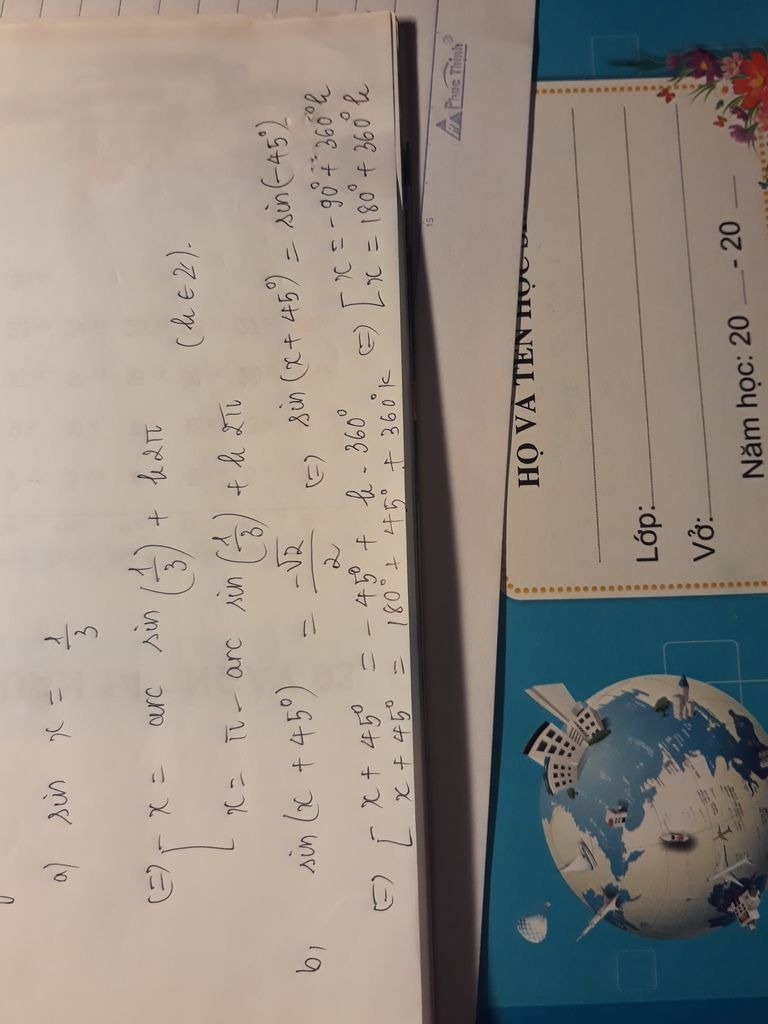 a) sin x = 1/3
(=) [ x = arc sin (1/3) + k2π
x = π - arc sin (1/3) + k2π (k ∈ Z).
b, sin(x + 45°) = -√2/2 (=) sin(x + 45°) = sin(-45°)
(=) [ x + 45° = -45° + k.360° (=) [ x = -90° + 360°k
x + 45° = 180° + 45° + 360°k x = 180° + 360°k
Phúc Thịnh
15
HỌ VÀ TÊN HỌC
Lớp:
Vở:
Năm học: 20 - 20